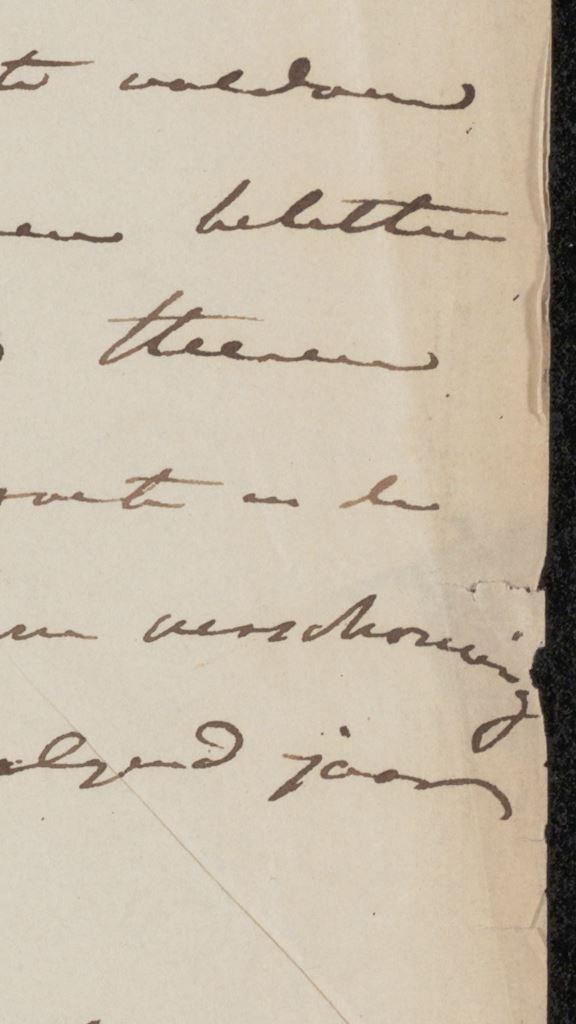 te voldoen
en beletten
theeren
oute in de
en verschooning
olgend jaar